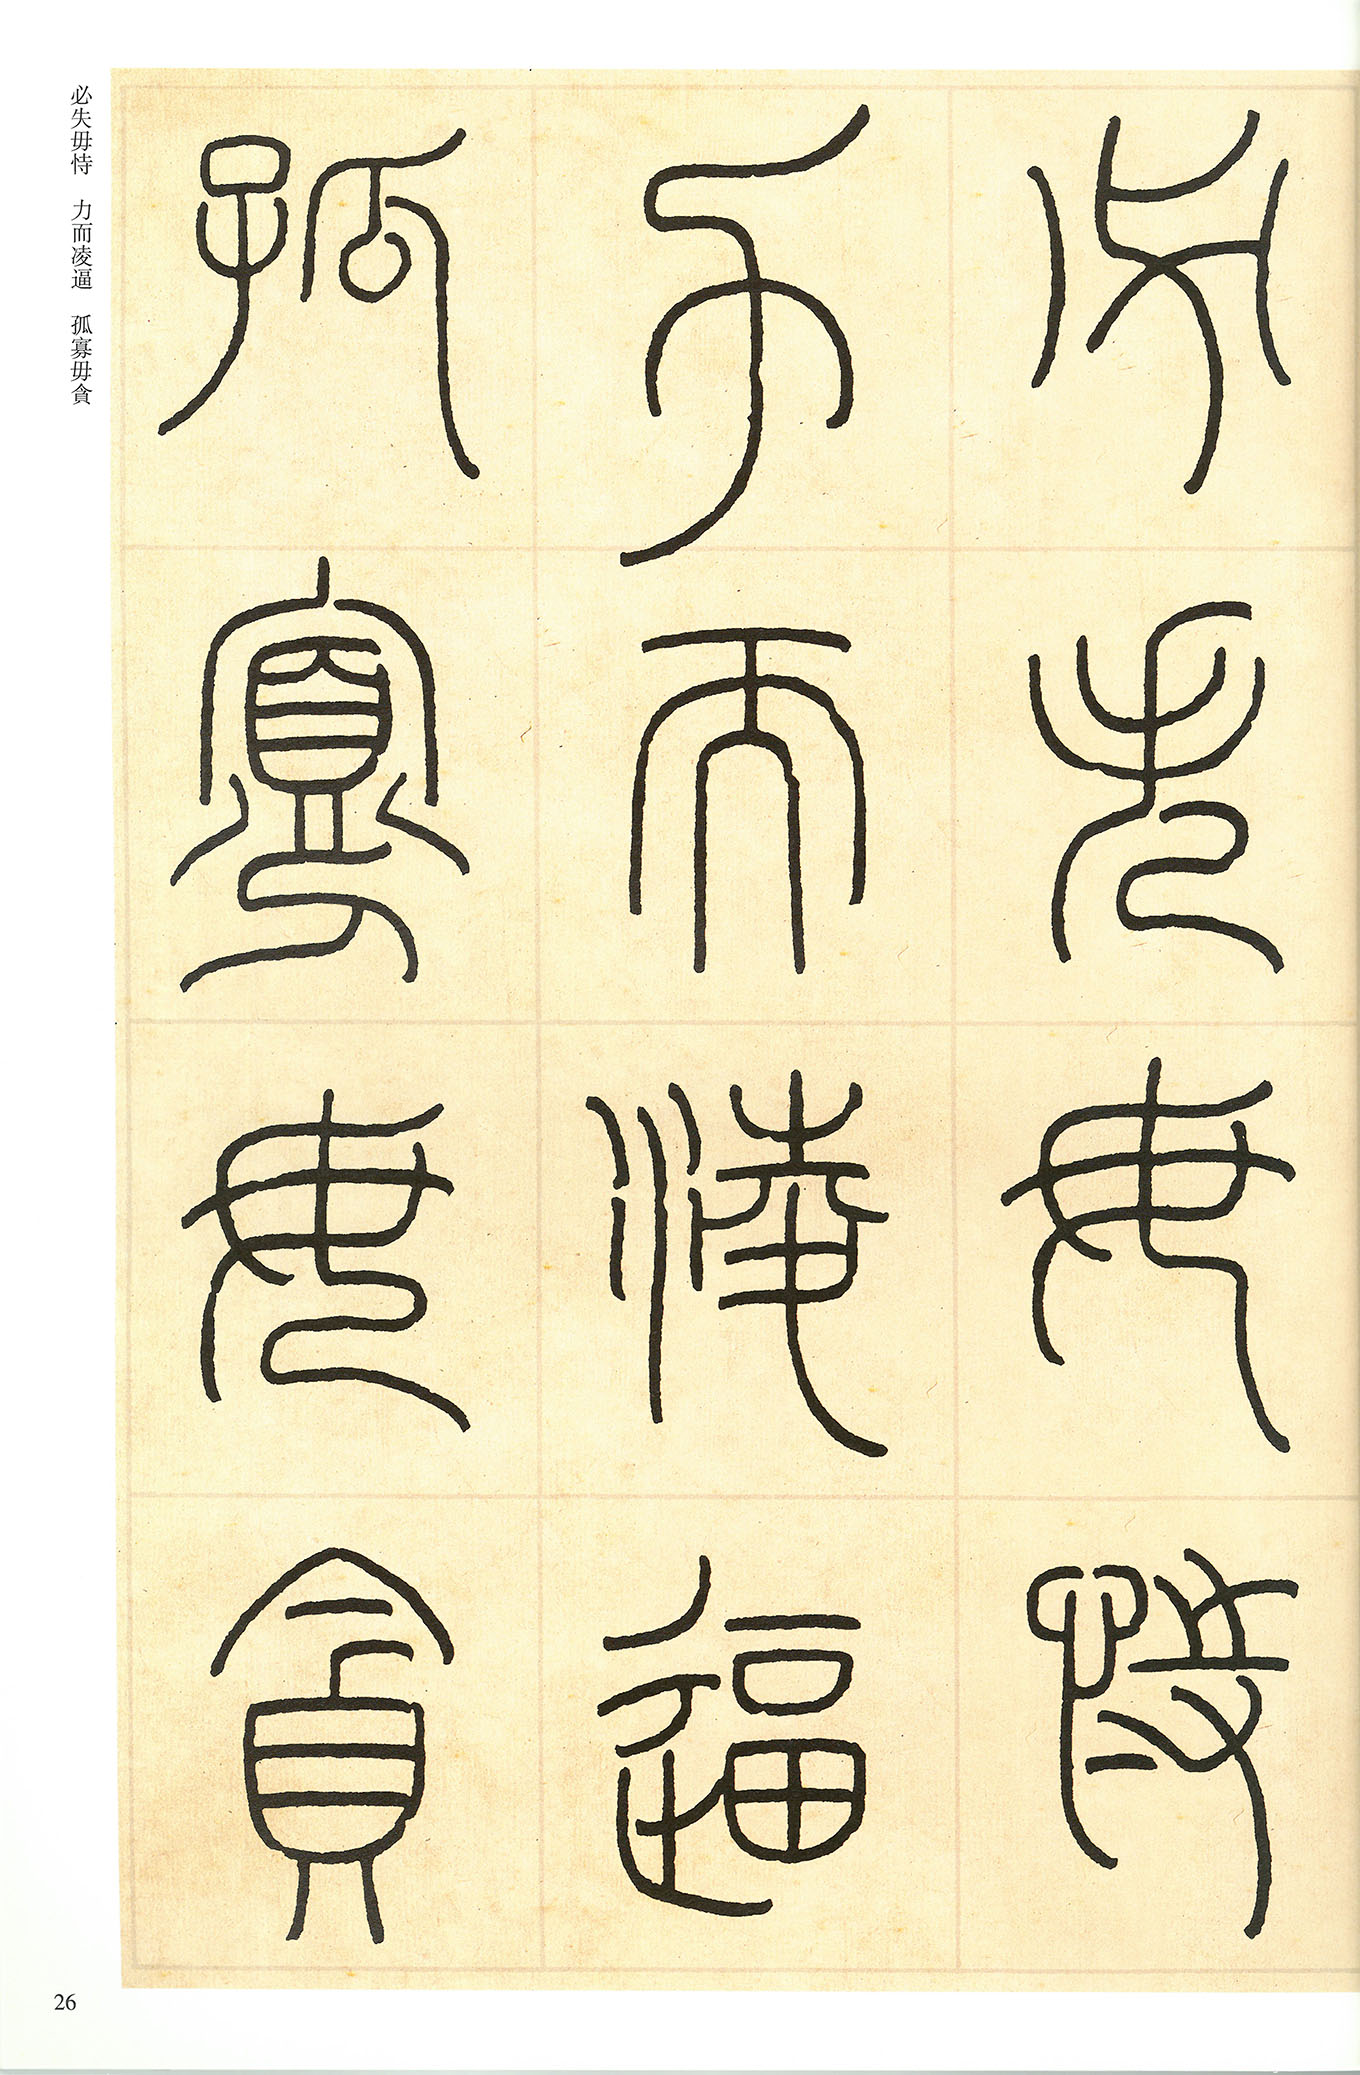 必失毋恃
力而凌逼
孤寡毋貪
必失毋恃　力而凌逼　孤寡毋貪
26